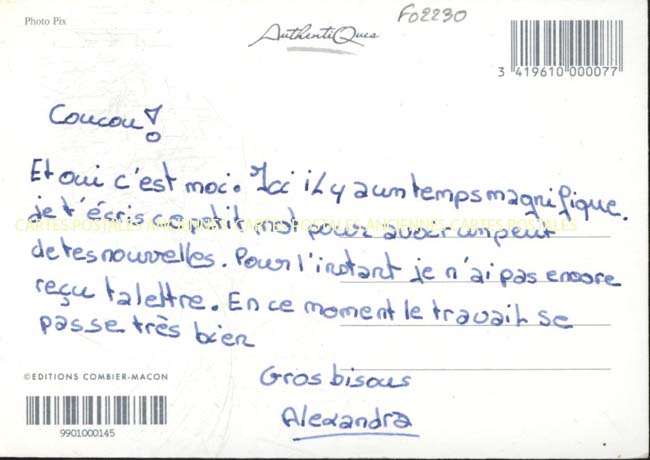 Photo Pix
AuthentiQues
F02230
3 419610 000077
Coucou !
Et oui c'est moi. Ici il y a un temps magnifique.
je t'écris ce petit mot pour avoir un peu
CARTES POSTALES ANCIENNES CARTES POSTALES ANCIENNES CARTES POSTALES
de tes nouvelles. Pour l'instant je n'ai pas encore
reçu ta lettre. En ce moment le travail se
passe très bien
©EDITIONS COMBIER-MACON
Gros bisous
Alexandra
9901000145